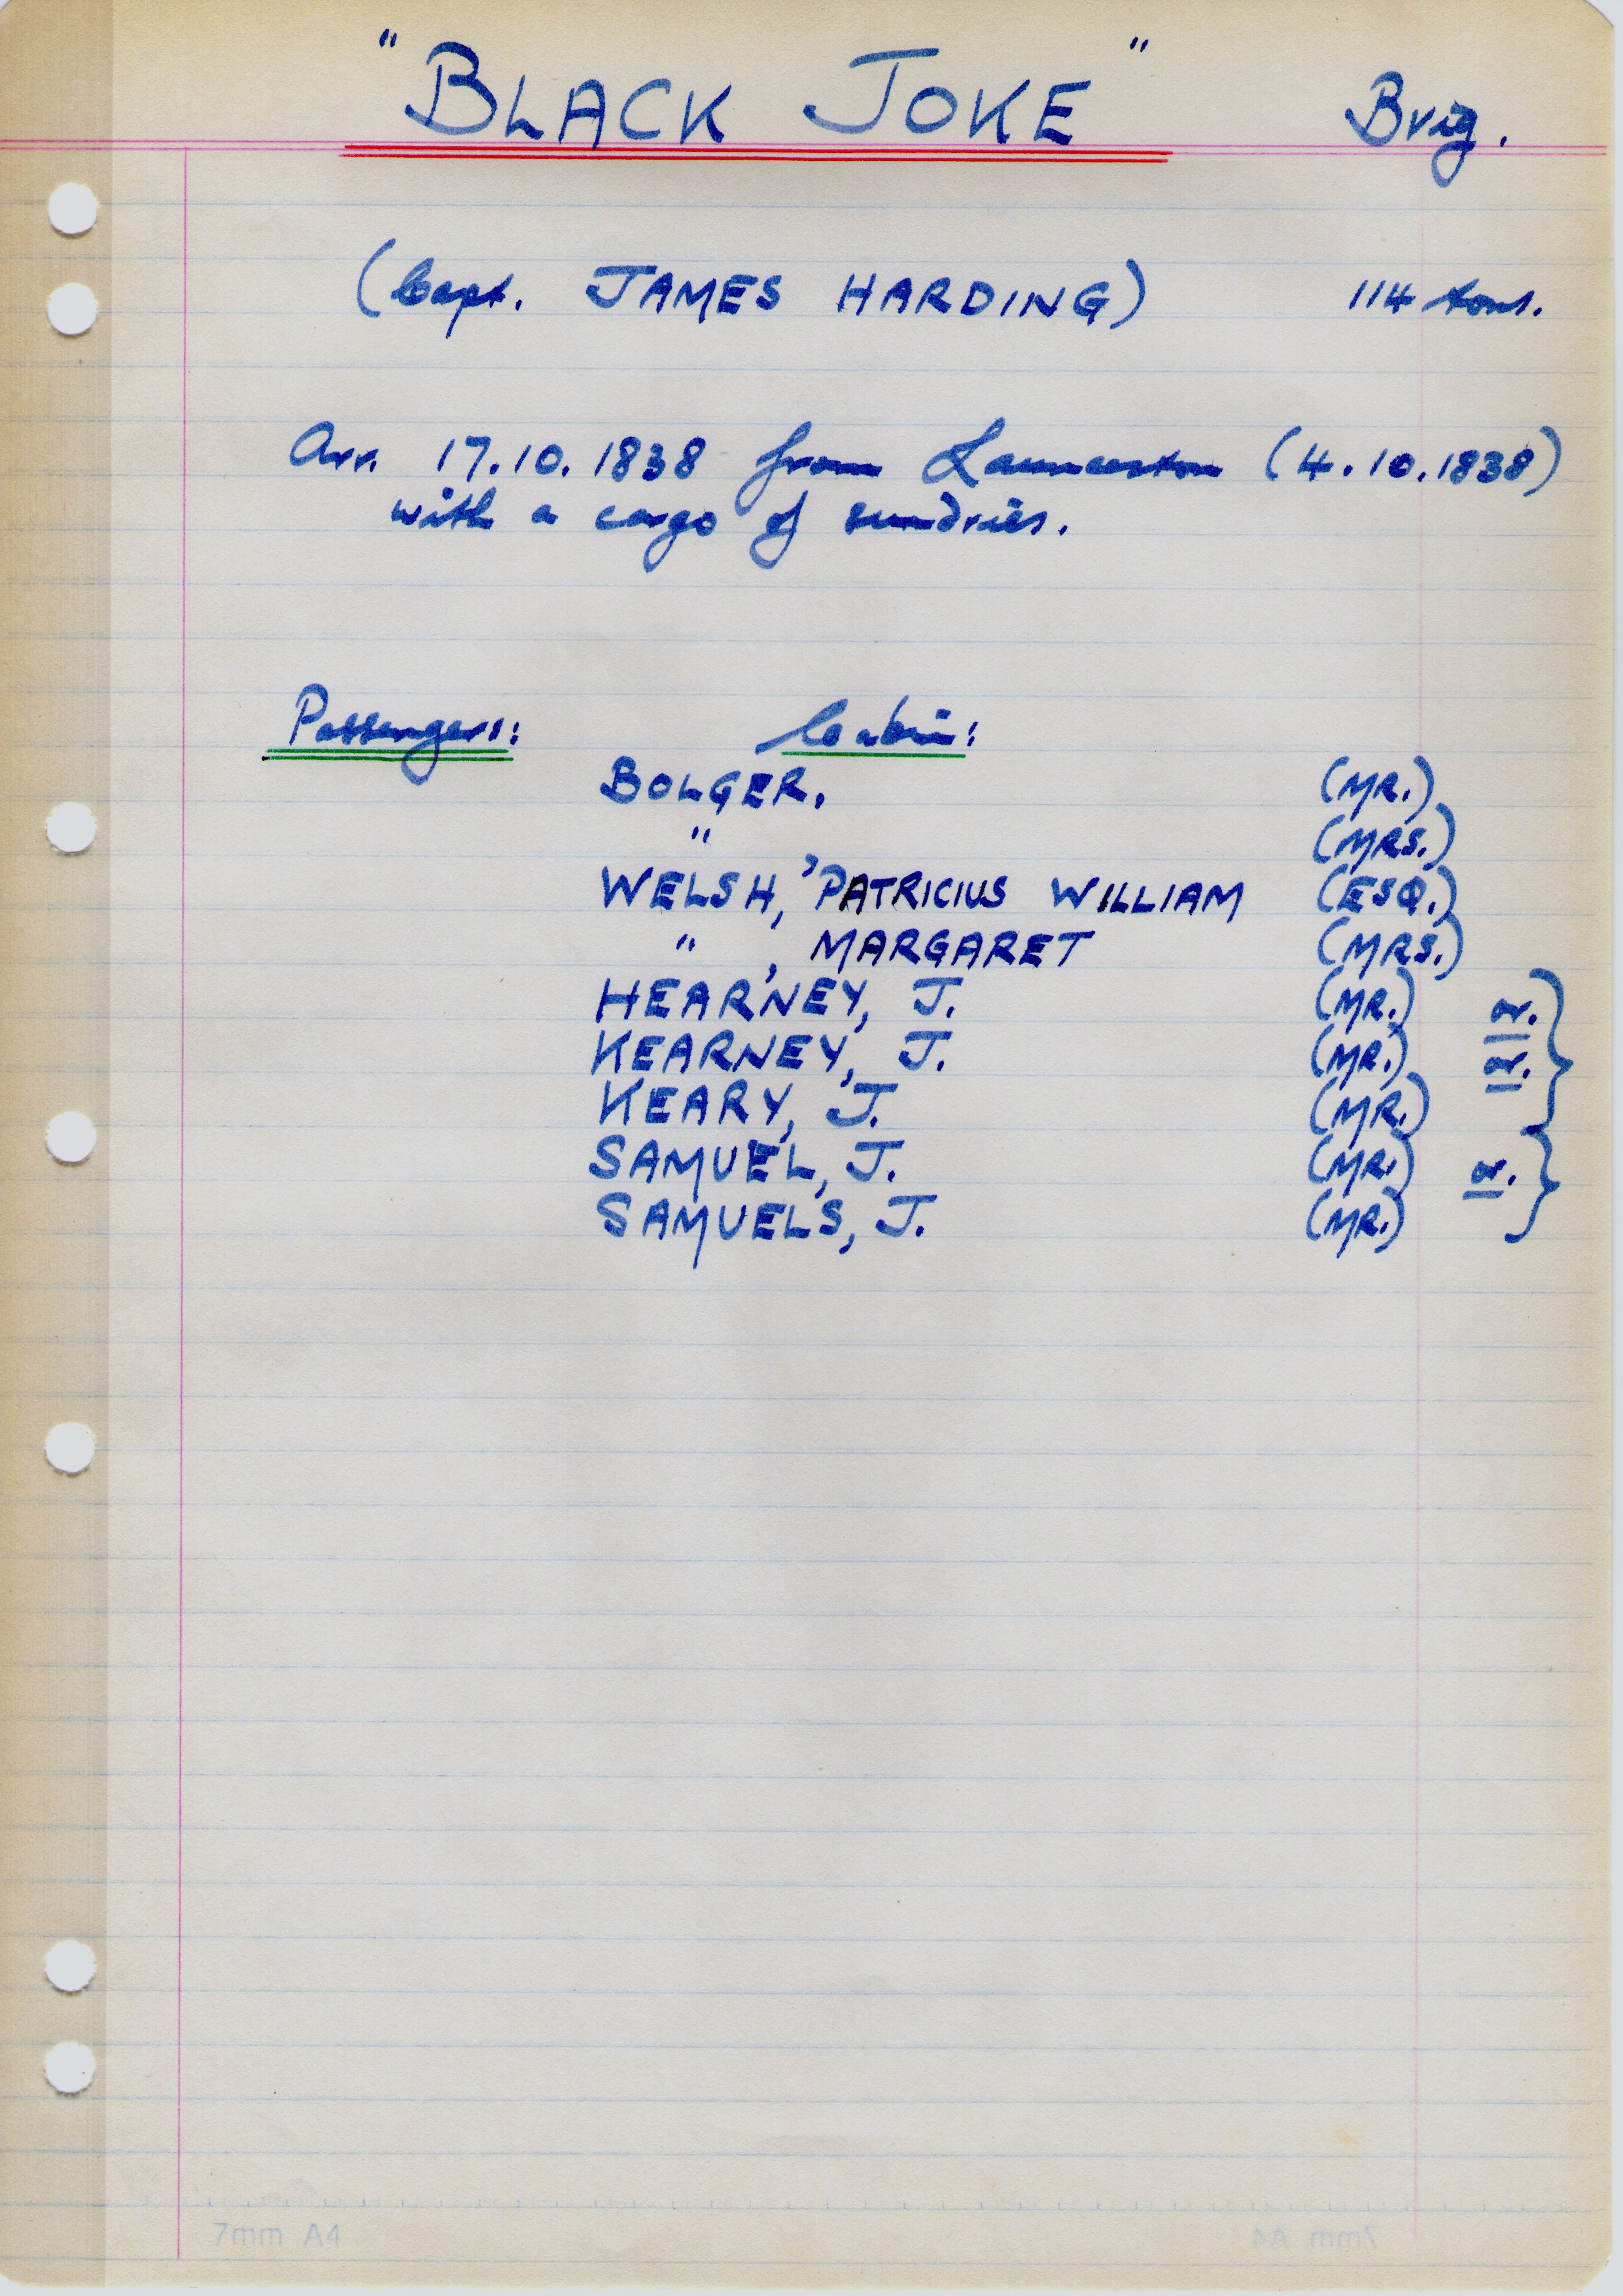 "BLACK JOKE" Brig.
(Capt. JAMES HARDING) 114 tons.
Arr. 17.10.1838 from Launceston (4.10.1838)
with a cargo of sundries.
Passengers: Cabin:
BOLGER. (MR.)
" (MRS.)
WELSH, PATRICIUS WILLIAM (ESQ.)
" , MARGARET (MRS.)
HEARNEY, J. (MR.) or. }
KEARNEY, J. (MR.) or.
KEARY, J. (MR.)
SAMUEL, J. (MR.) or. }
SAMUELS, J. (MR.)
7mm A4